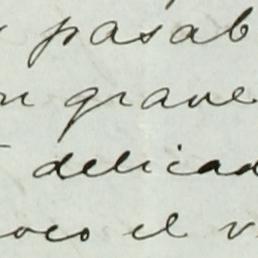 pasab
grave
delicad
oco el v